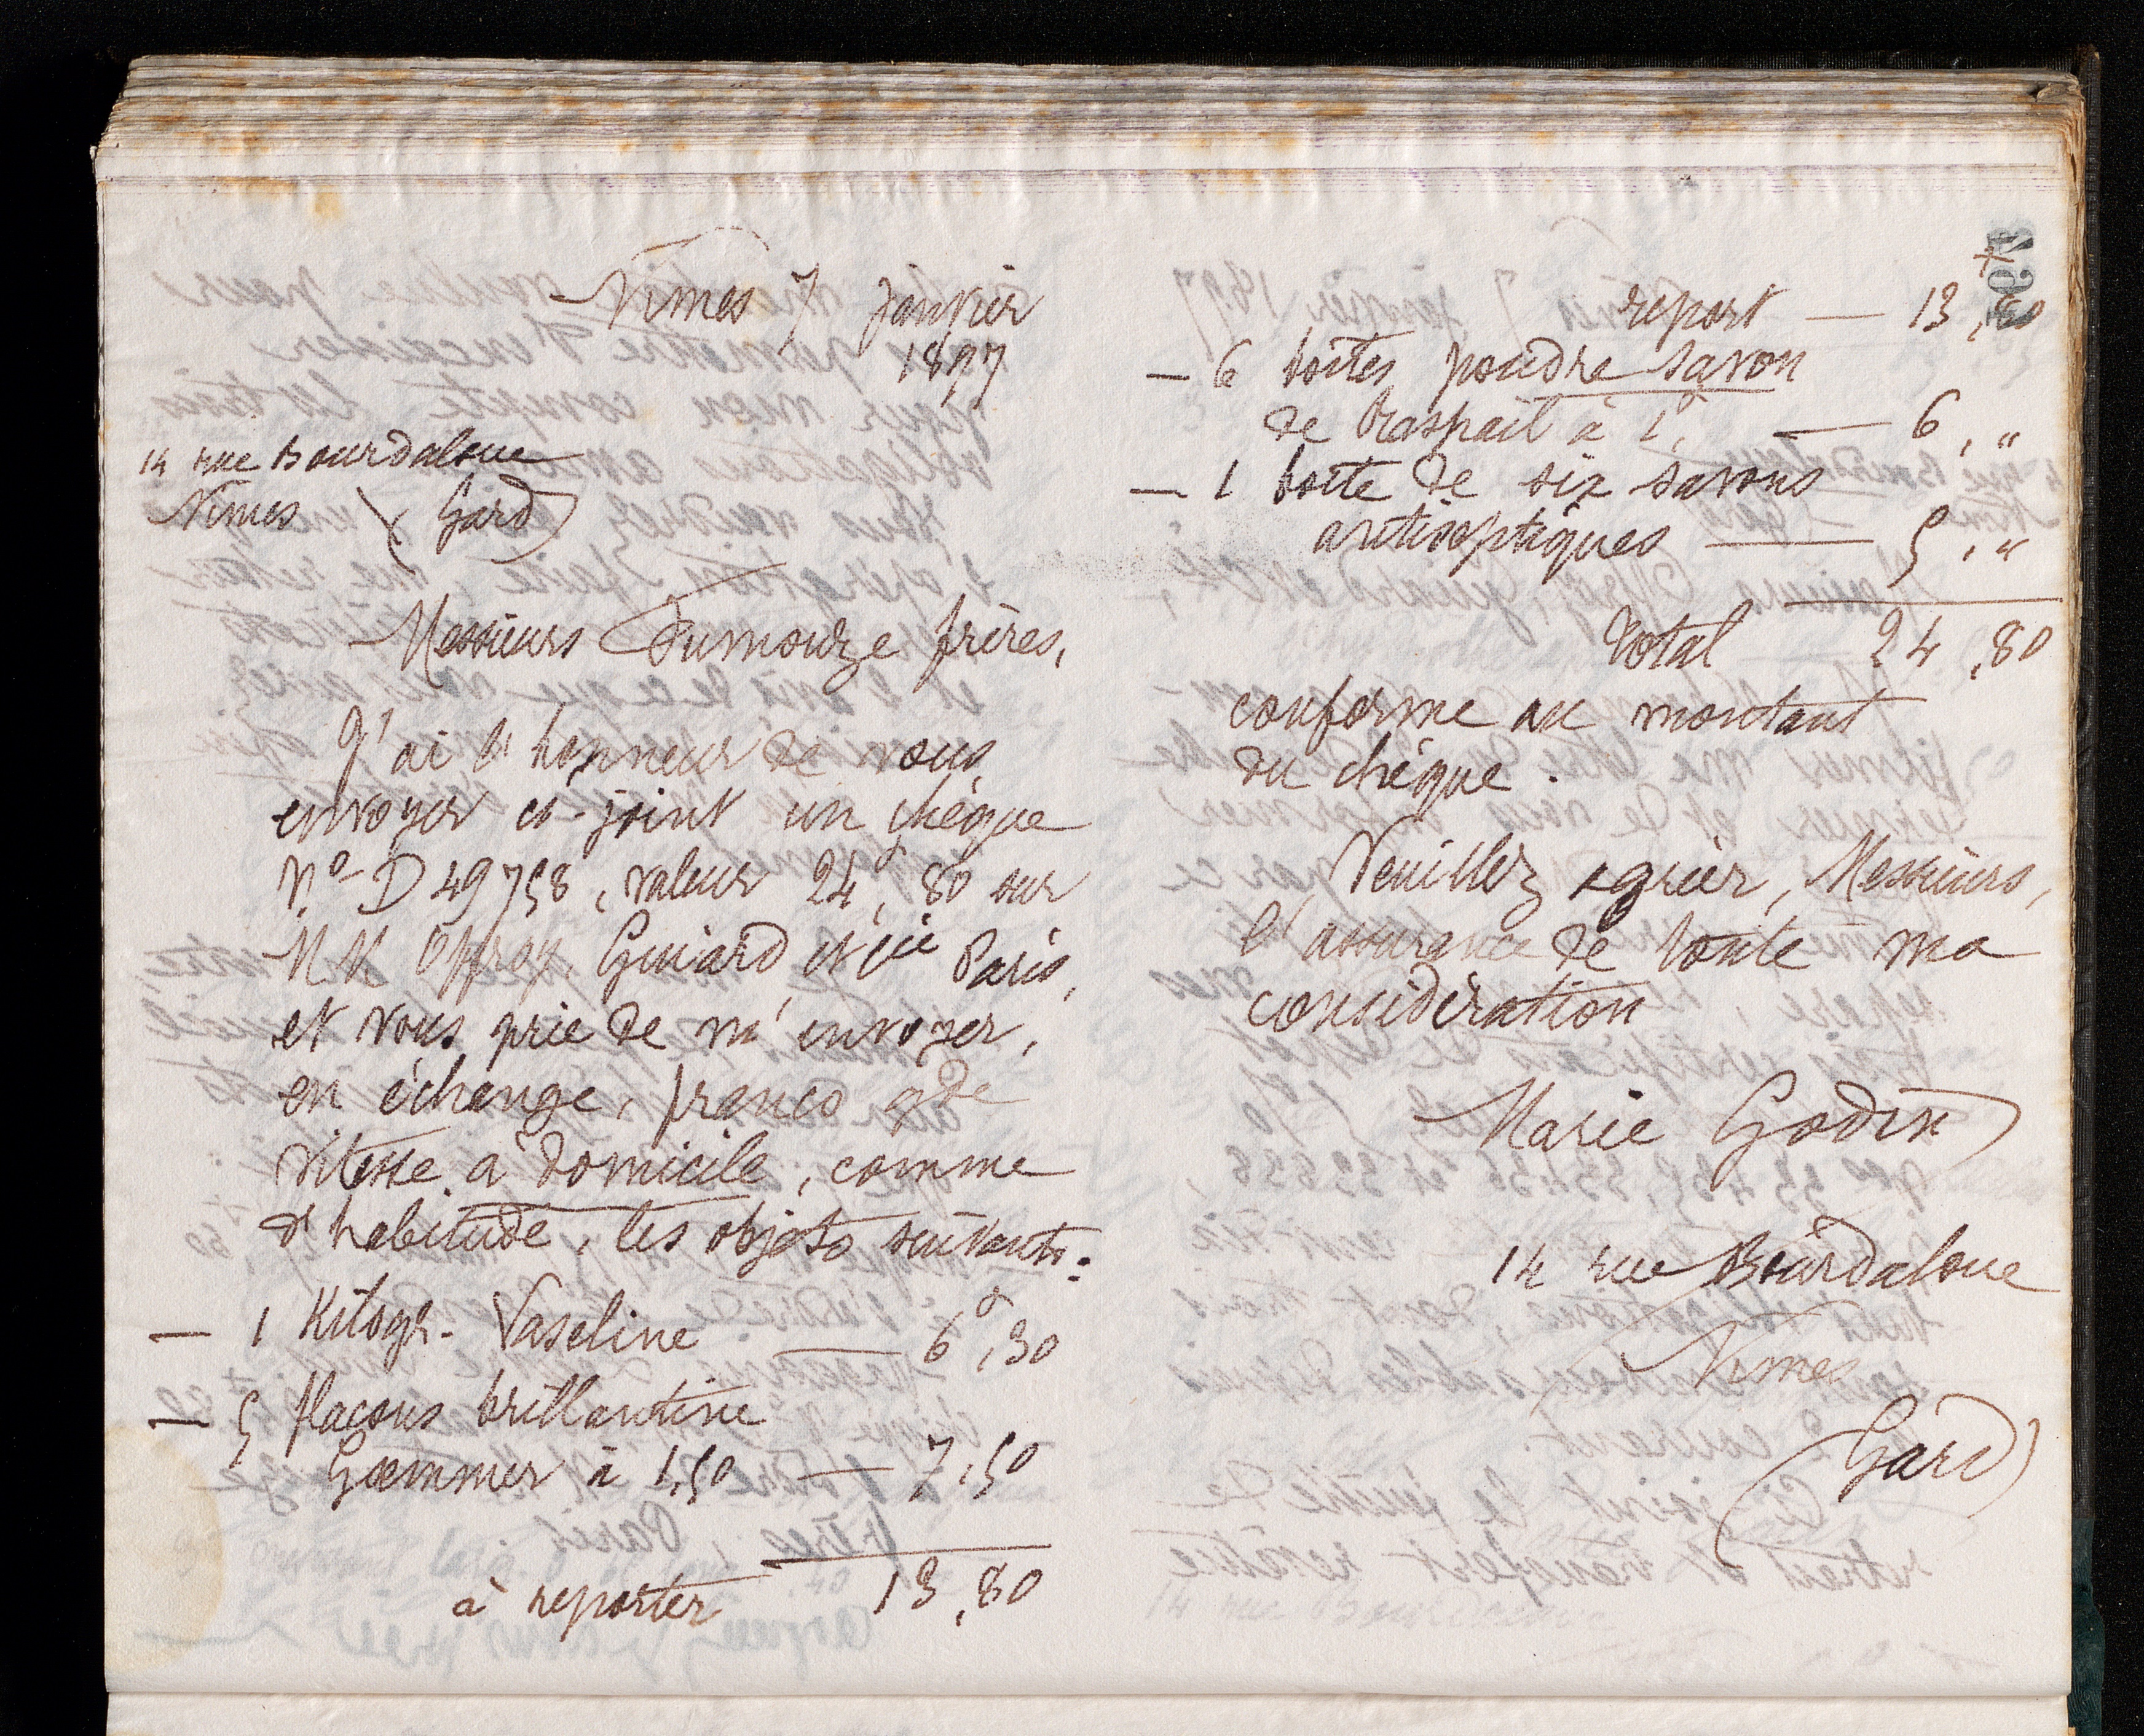 Nimes 7 janvier
1897
14 rue Bourdaloue
Nimes (Gard)
Messieurs Fumouze frères,
J'ai l'honneur de vous
envoyer ci-joint un chèque
N.º D 49758, valeur 24f, 80 sur
M M Offroy, Guiard et Cie Paris,
et vous prie de m'envoyer,
en échange, franco gde
vitesse à domicile, comme
d'habitude, les objets suivants:
— 1 Kilogr. Vaseline — 6f,30
— 5 flacons brillantine
à 1,50 — 7,50
à reporter 13,80
report — 13,80
— 6 boîtes poudre savon
de Raspail à 1f, — 6,"
— 1 boîte de six savons
antiseptiques — 5,"
Total 24,80
conforme au montant
du chèque.
Veuillez agréer, Messieurs,
l'assurance de toute ma
considération
Marie Godin
14 rue Bourdaloue
Nimes
(Gard)